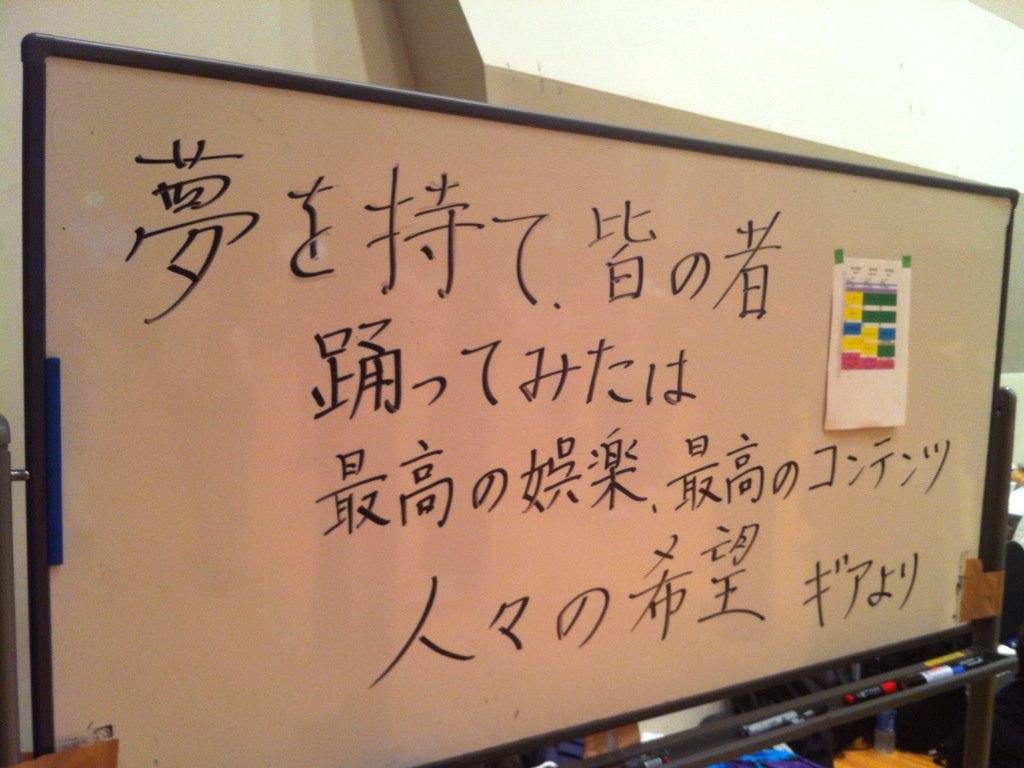 夢を持て、皆の者
踊ってみたは
最高の娯楽、最高のコンテンツ
人々の希望 ギアより